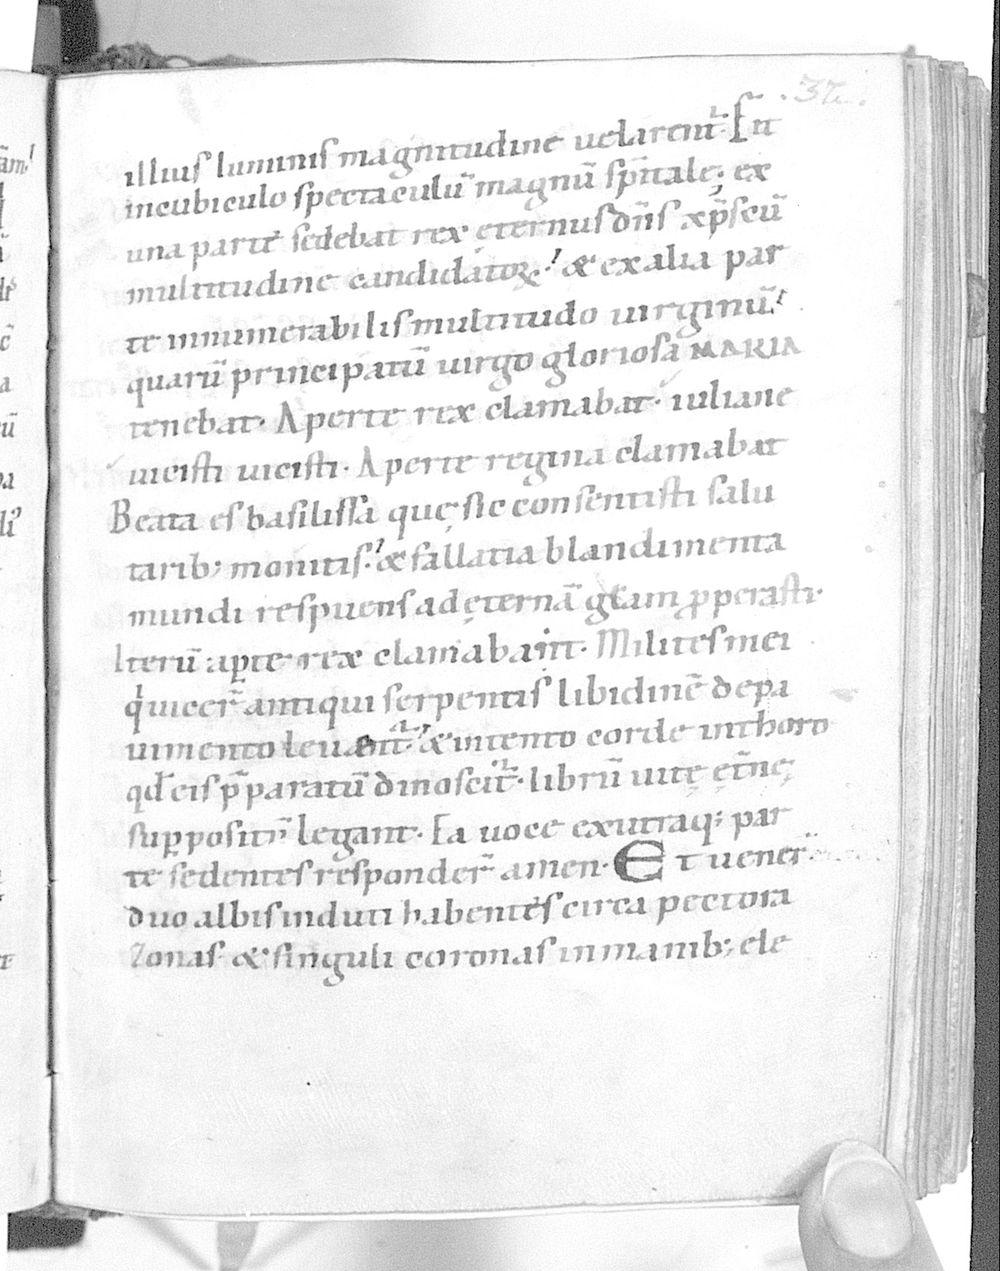 .37.
illius luminis magnitudine uelarent᷑. En̄
incubiculo spectaculū magnū sp̄itale; ex
una parte sedebat rex ęternus dn̄s xp̄s cū
multitudine candidatoꝝ. & exalia par
te innumerabilis multitudo uirginū.
quarū principatū uirgo gloriosa MARIA
tenebat. Aperte rex clamabat. iuliane
uicisti uicisti. Aperte regina clamabat
Beata es basilissa quę sic consentisti salu
tarib; monitis. & fallatia blandimenta
mundi respuens ad ęternā głam ꝓperasti.
Iterū aꝑte rex clamabant. Milites mei
qͥ uicer̄ antiqui serpentis libidinē depa
uimento leuent᷑. & intento corde inthoro
qd̄ eis p̄paratū dinoscit᷑. librū uitę ęt̄nę
suppositū legant. Ea uoce exutraq; par
te sedentes responder̄ amen. Et uener̄
duo albis induti habentes circa pectora
Zonas & singuli coronas inmanib; ele